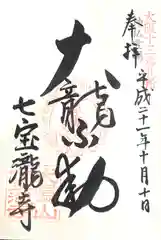 奉拝 平成二十一年十月十日
大龍不動
七宝瀧寺